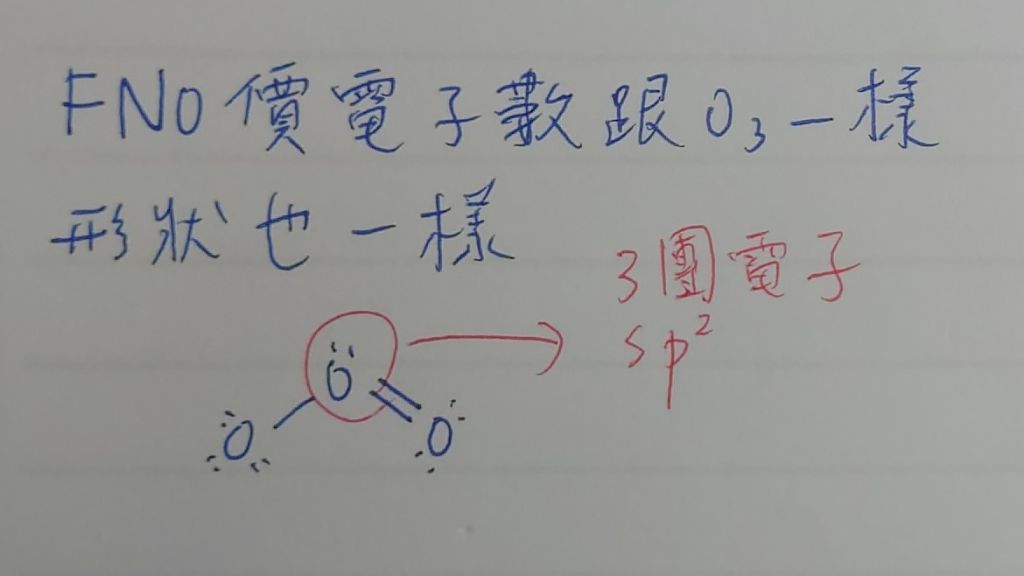 FNO價電子數跟O₃一樣
形狀也一樣
3團電子
sp²
O
O
O